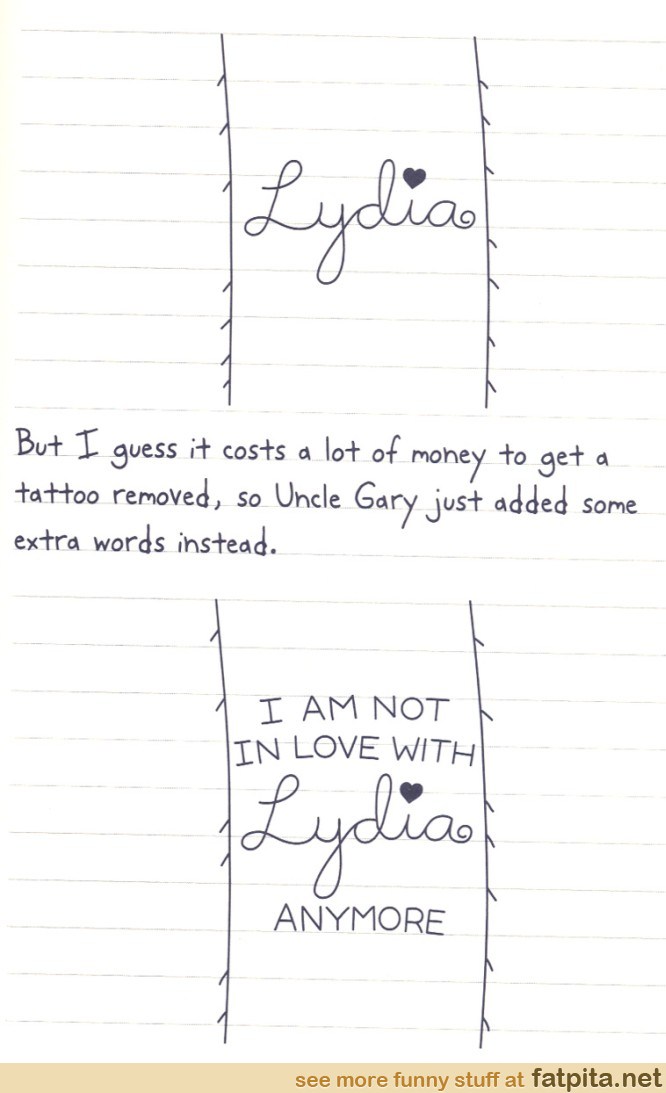 Lydia
But I guess it costs a lot of money to get a
tattoo removed, so Uncle Gary just added some
extra words instead.
I AM NOT
IN LOVE WITH
Lydia
ANYMORE
see more funny stuff at fatpita.net